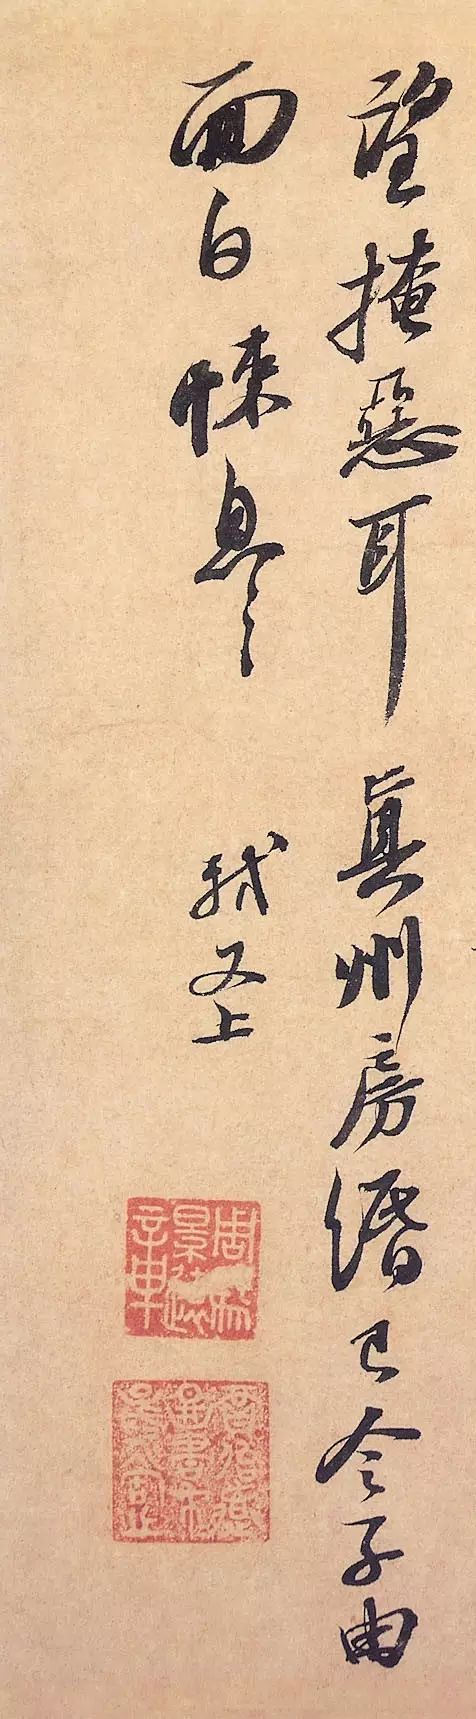 望掩惡耳真州房緡已令子由
面白悚息〻
軾又上